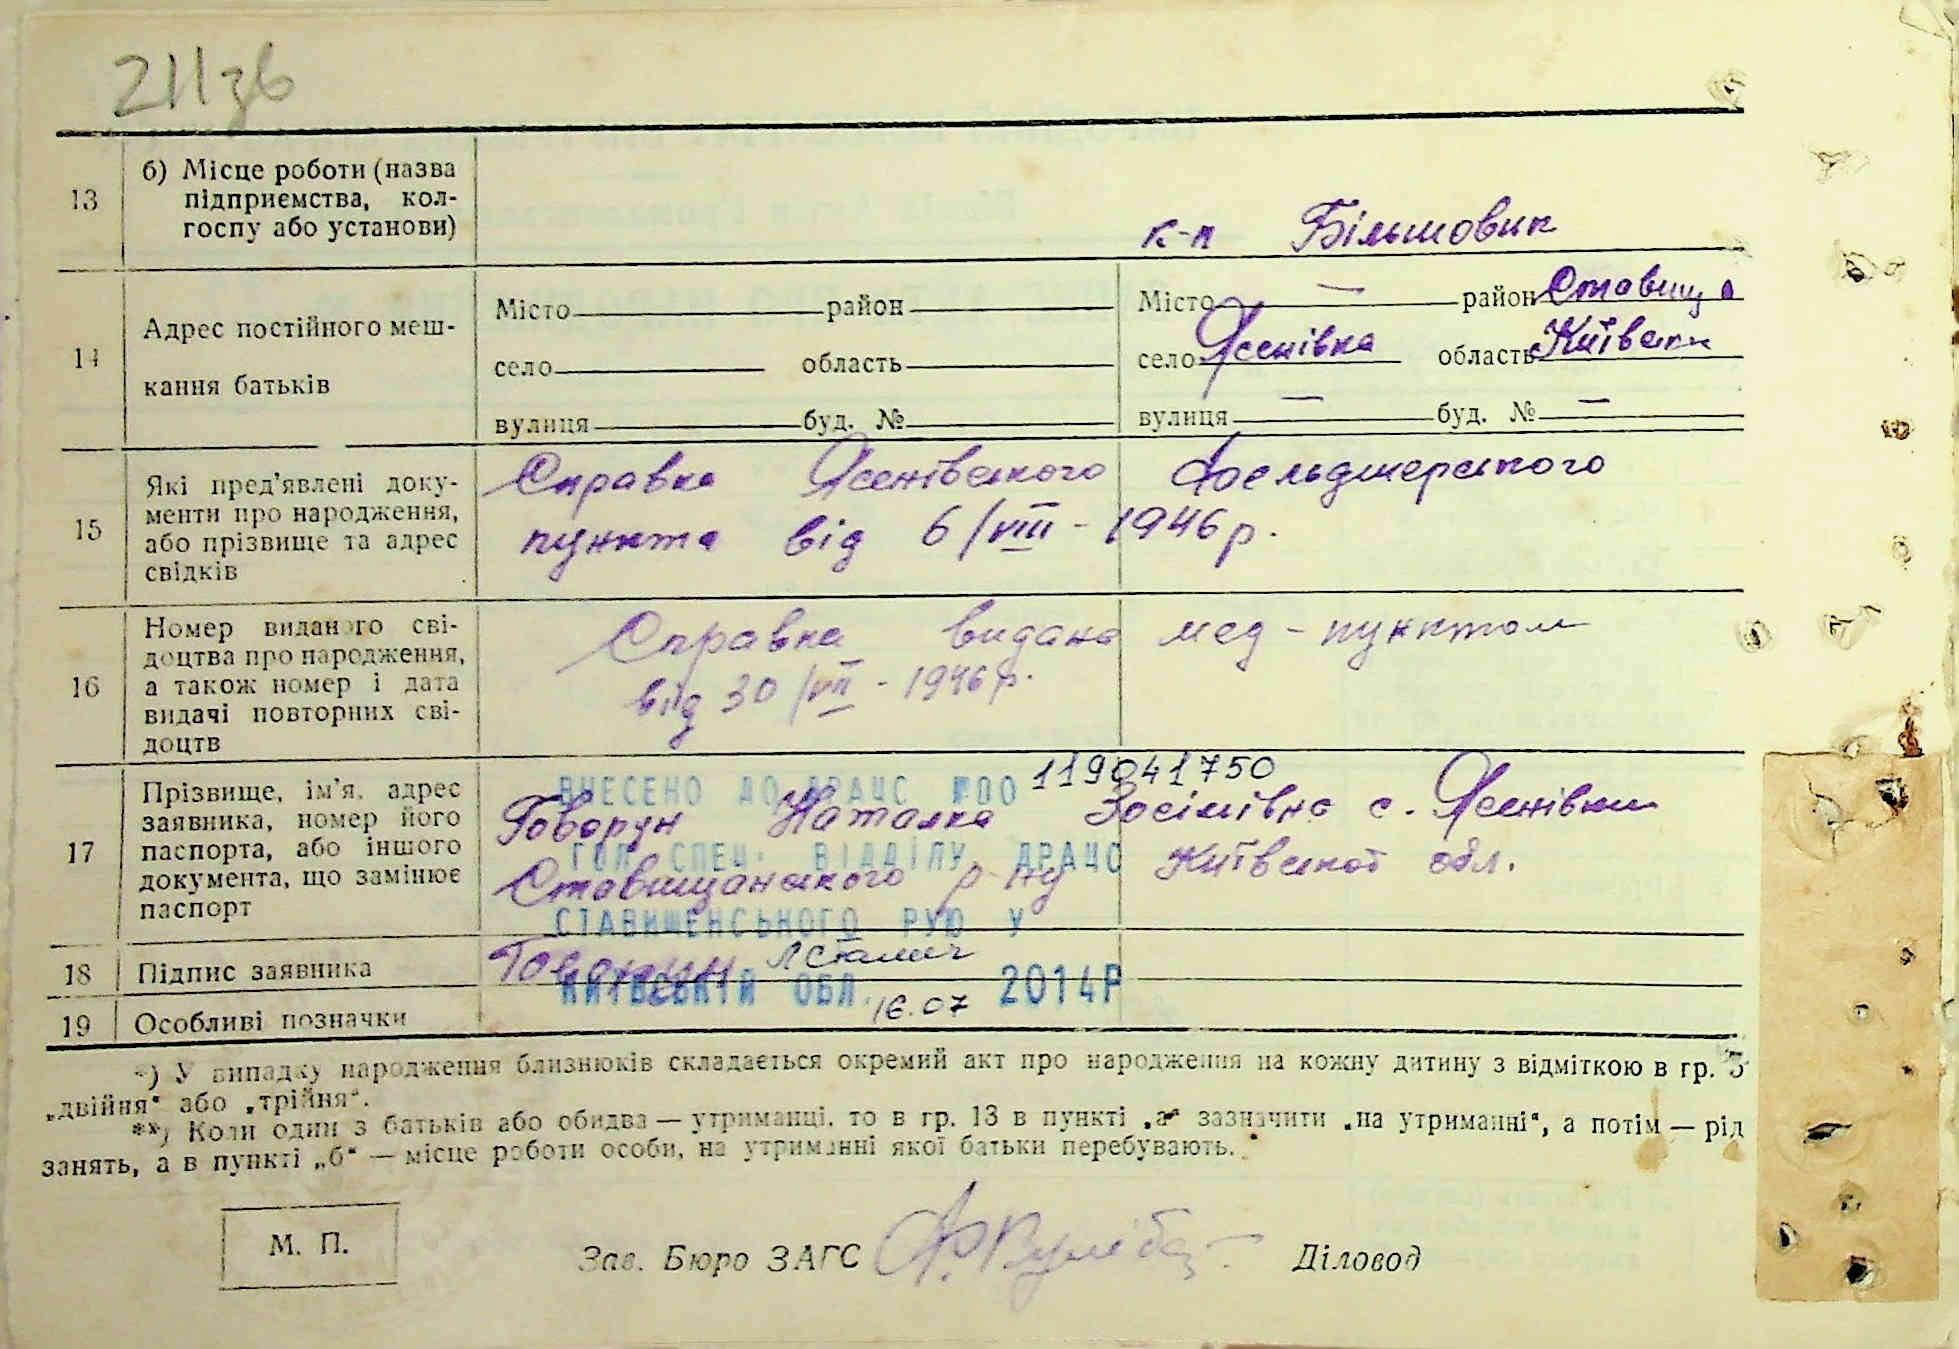 211зв
13
б) Місце роботи (назва
підприємства, кол-
госпу або установи)
к-п Більшовик
14
Адрес постійного меш-
кання батьків
Місто район
село область
вулиця буд. №
Місто — район Ставищ
село Ясенівка область Київськ
вулиця — буд. № —
15
Які пред'явлені доку-
менти про народження,
або прізвище та адрес
свідків
Справка Ясенівського Фельдшерського
пункта від 6/VIII - 1946 р.
16
Номер виданого сві-
доцтва про народження,
а також номер і дата
видачі повторних сві-
доцтв
Справка видана мед-пунктом
від 30/VII - 1946 р.
17
Прізвище, ім'я, адрес
заявника, номер його
паспорта, або іншого
документа, що замінює
паспорт
ВНЕСЕНО ДО ДРАЦС №00 119041750
Говорун Наталка Зосімівна с. Ясенівки
ГОЛ. СПЕЦ. ВІДДІЛУ ДРАЦС
Ставищанського р-ну Київської обл.
СТАВИЩЕНСЬКОГО РУЮ У
18
Підпис заявника
Говорун
КИЇВСЬКІЙ ОБЛ. 16.07 2014Р
19
Особливі позначки
*) У випадку народження близнюків складається окремий акт про народження на кожну дитину з відміткою в гр. 3
„двійня“ або „трійня“.
**) Коли один з батьків або обидва — утриманці, то в гр. 13 в пункті „а“ зазначити „на утриманні“, а потім — рід
занять, а в пункті „б“ — місце роботи особи, на утриманні якої батьки перебувають.
М. П.
Зав. Бюро ЗАГС
Діловод